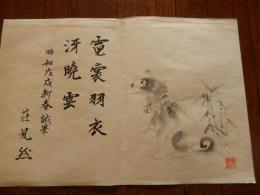 霓裳羽衣
冴曉雲
昭和戊戌新春 試筆